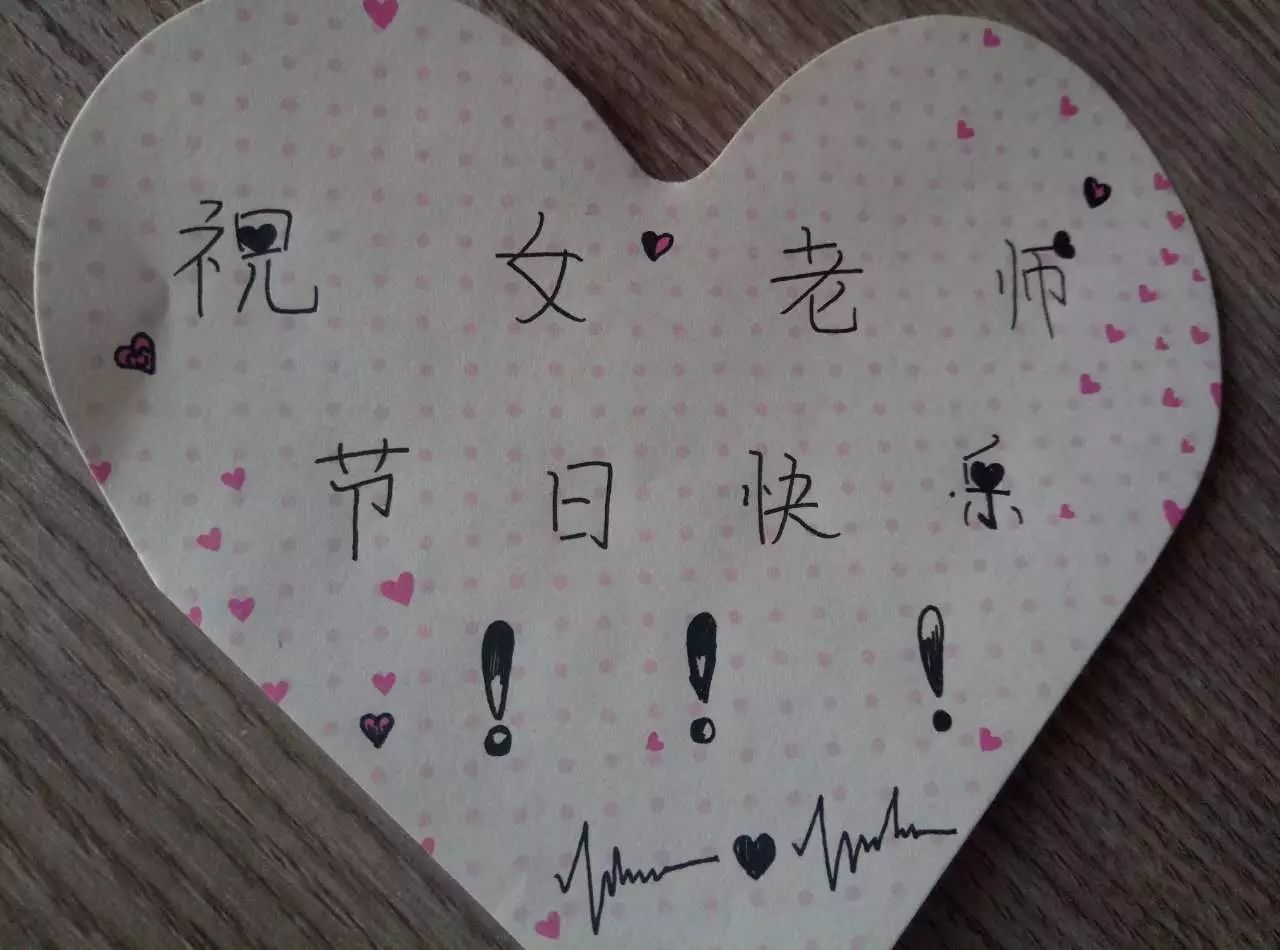 祝女老师
节日快乐
!!!